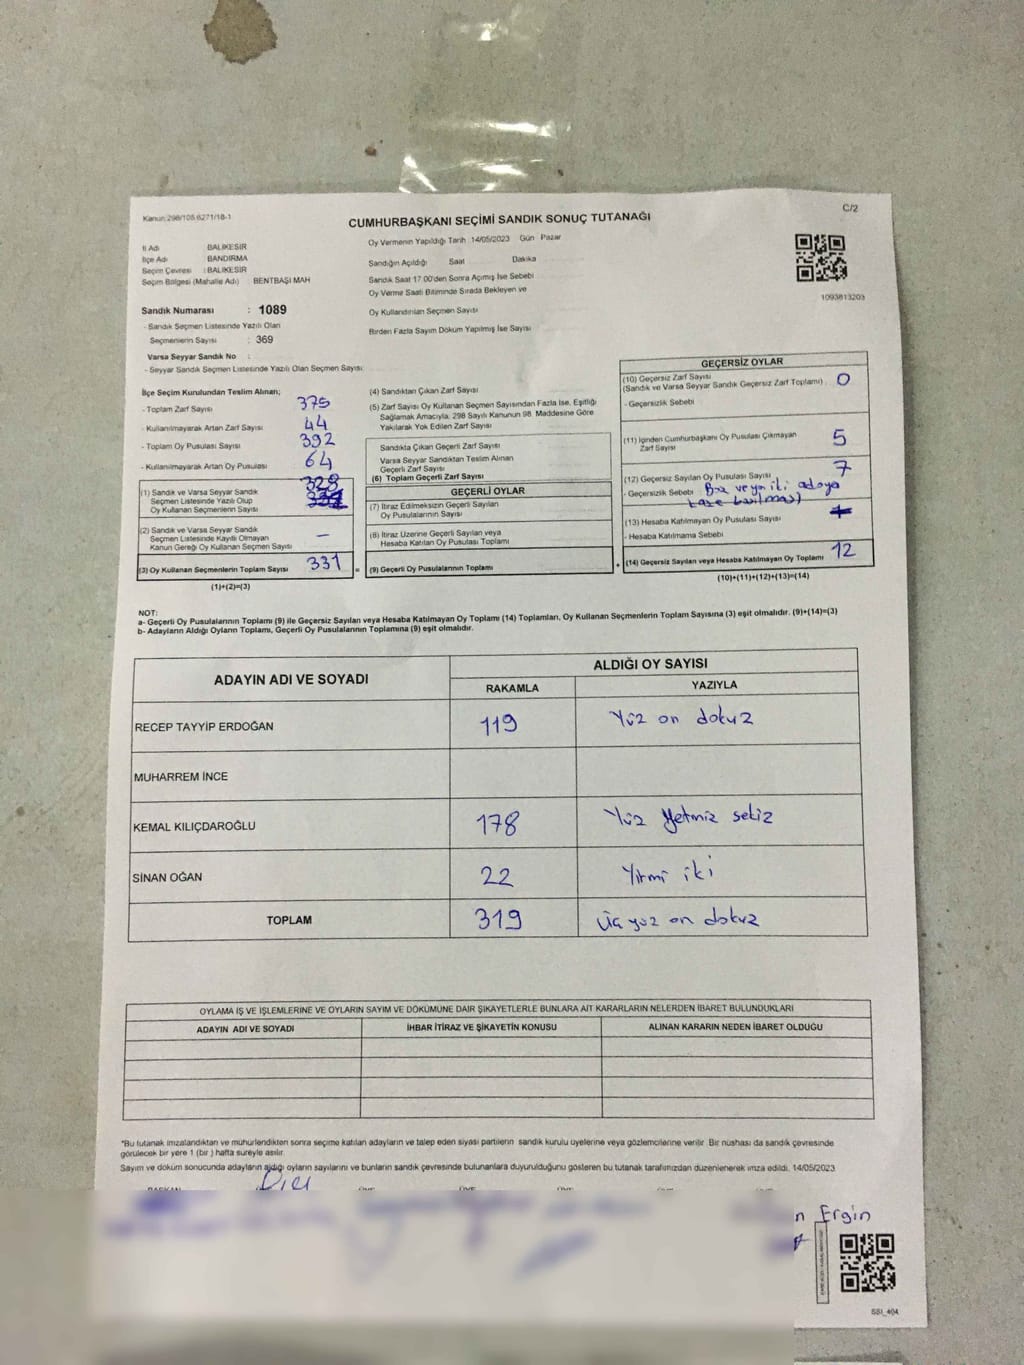 Kanun:298/105 6271/18-1
C/2
CUMHURBAŞKANI SEÇİMİ SANDIK SONUÇ TUTANAĞI
İl Adı BALIKESİR
İlçe Adı BANDIRMA
Seçim Çevresi : BALIKESİR
Seçim Bölgesi (Mahalle Adı) BENTBAŞI MAH
Oy Vermenin Yapıldığı Tarih 14/05/2023 Gün Pazar
Sandığın Açıldığı Saat Dakika
Sandık Saat 17.00'den Sonra Açmış İse Sebebi
Oy Verme Saati Bitiminde Sırada Bekleyen ve
Oy Kullandırılan Seçmen Sayısı
Birden Fazla Sayım Döküm Yapılmış İse Sayısı
1093813203
Sandık Numarası : 1089
- Sandık Seçmen Listesinde Yazılı Olan
Seçmenlerin Sayısı : 369
Varsa Seyyar Sandık No :
- Seyyar Sandık Seçmen Listesinde Yazılı Olan Seçmen Sayısı
İlçe Seçim Kurulundan Teslim Alınan;
- Toplam Zarf Sayısı 375
- Kullanılmayarak Artan Zarf Sayısı 44
- Toplam Oy Pusulası Sayısı 392
- Kullanılmayarak Artan Oy Pusulası 64
328
(1) Sandık ve Varsa Seyyar Sandık
Seçmen Listesinde Yazılı Olup
Oy Kullanan Seçmenlerin Sayısı
(2) Sandık ve Varsa Seyyar Sandık
Seçmen Listesinde Kayıtlı Olmayan
Kanun Gereği Oy Kullanan Seçmen Sayısı —
(3) Oy Kullanan Seçmenlerin Toplam Sayısı 331
(1)+(2)=(3)
=
(4) Sandıktan Çıkan Zarf Sayısı
(5) Zarf Sayısı Oy Kullanan Seçmen Sayısından Fazla İse, Eşitliği
Sağlamak Amacıyla, 298 Sayılı Kanunun 98. Maddesine Göre
Yakılarak Yok Edilen Zarf Sayısı
Sandıkta Çıkan Geçerli Zarf Sayısı
Varsa Seyyar Sandıktan Teslim Alınan
Geçerli Zarf Sayısı
(6) Toplam Geçerli Zarf Sayısı
GEÇERLİ OYLAR
(7) İtiraz Edilmeksizin Geçerli Sayılan
Oy Pusulalarının Sayısı
(8) İtiraz Üzerine Geçerli Sayılan veya
Hesaba Katılan Oy Pusulası Toplamı
(9) Geçerli Oy Pusulalarının Toplamı
+
GEÇERSİZ OYLAR
(10) Geçersiz Zarf Sayısı
(Sandık ve Varsa Seyyar Sandık Geçersiz Zarf Toplamı) 0
- Geçersizlik Sebebi
(11) İçinden Cumhurbaşkanı Oy Pusulası Çıkmayan
Zarf Sayısı 5
(12) Geçersiz Sayılan Oy Pusulası Sayısı 7
- Geçersizlik Sebebi Boş veya iki adaya
kaşe basılması)
(13) Hesaba Katılmayan Oy Pusulası Sayısı
- Hesaba Katılmama Sebebi
(14) Geçersiz Sayılan veya Hesaba Katılmayan Oy Toplamı 12
(10)+(11)+(12)+(13)=(14)
NOT:
a- Geçerli Oy Pusulalarının Toplamı (9) ile Geçersiz Sayılan veya Hesaba Katılmayan Oy Toplamı (14) Toplamları, Oy Kullanan Seçmenlerin Toplam Sayısına (3) eşit olmalıdır. (9)+(14)=(3)
b- Adayların Aldığı Oyların Toplamı, Geçerli Oy Pusulalarının Toplamına (9) eşit olmalıdır.
ADAYIN ADI VE SOYADI
ALDIĞI OY SAYISI
RAKAMLA YAZIYLA
RECEP TAYYİP ERDOĞAN 119 Yüz on dokuz
MUHARREM İNCE
KEMAL KILIÇDAROĞLU 178 Yüz Yetmiz sekiz
SİNAN OĞAN 22 Yirmi iki
TOPLAM 319 Üç yüz on dokuz
OYLAMA İŞ VE İŞLEMLERİNE VE OYLARIN SAYIM VE DÖKÜMÜNE DAİR ŞİKAYETLERLE BUNLARA AİT KARARLARIN NELERDEN İBARET BULUNDUKLARI
ADAYIN ADI VE SOYADI İHBAR İTİRAZ VE ŞİKAYETİN KONUSU ALINAN KARARIN NEDEN İBARET OLDUĞU
*Bu tutanak imzalandıktan ve mühürlendikten sonra seçime katılan adayların ve talep eden siyasi partilerin sandık kurulu üyelerine veya gözlemcilerine verilir. Bir nüshası da sandık çevresinde
görülecek bir yere 1 (bir ) hafta süreyle asılır.
Sayım ve döküm sonucunda adayların aldığı oyların sayılarını ve bunların sandık çevresinde bulunanlara duyurulduğunu gösteren bu tutanak tarafımızdan düzenlenerek imza edildi. 14/05/2023
n Ergin
SSI_404